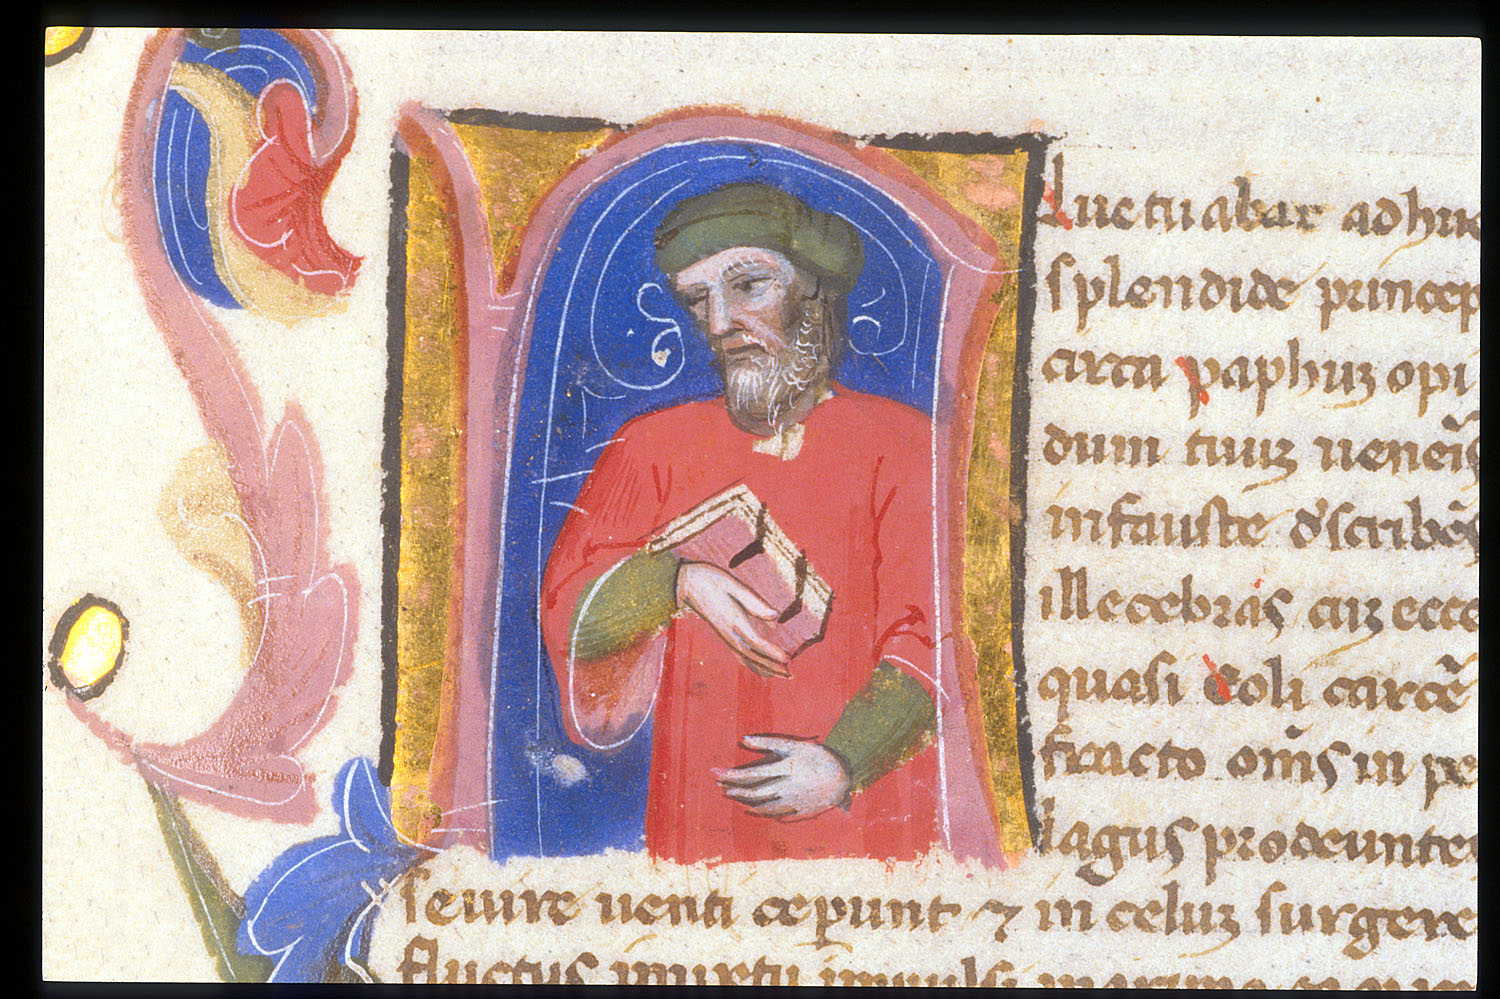 luctuabaz adhuc
splendide princep
circa paphuz opi
dum tuuz ueneĩs
infauste d'scribẽs
illecebras cuz ecce
quasi Eoli carcẽ
fracto om̃s in pe
lagus prodeuntes
seuire uenti ceperunt ⁊ in celuz surgere
fluctus